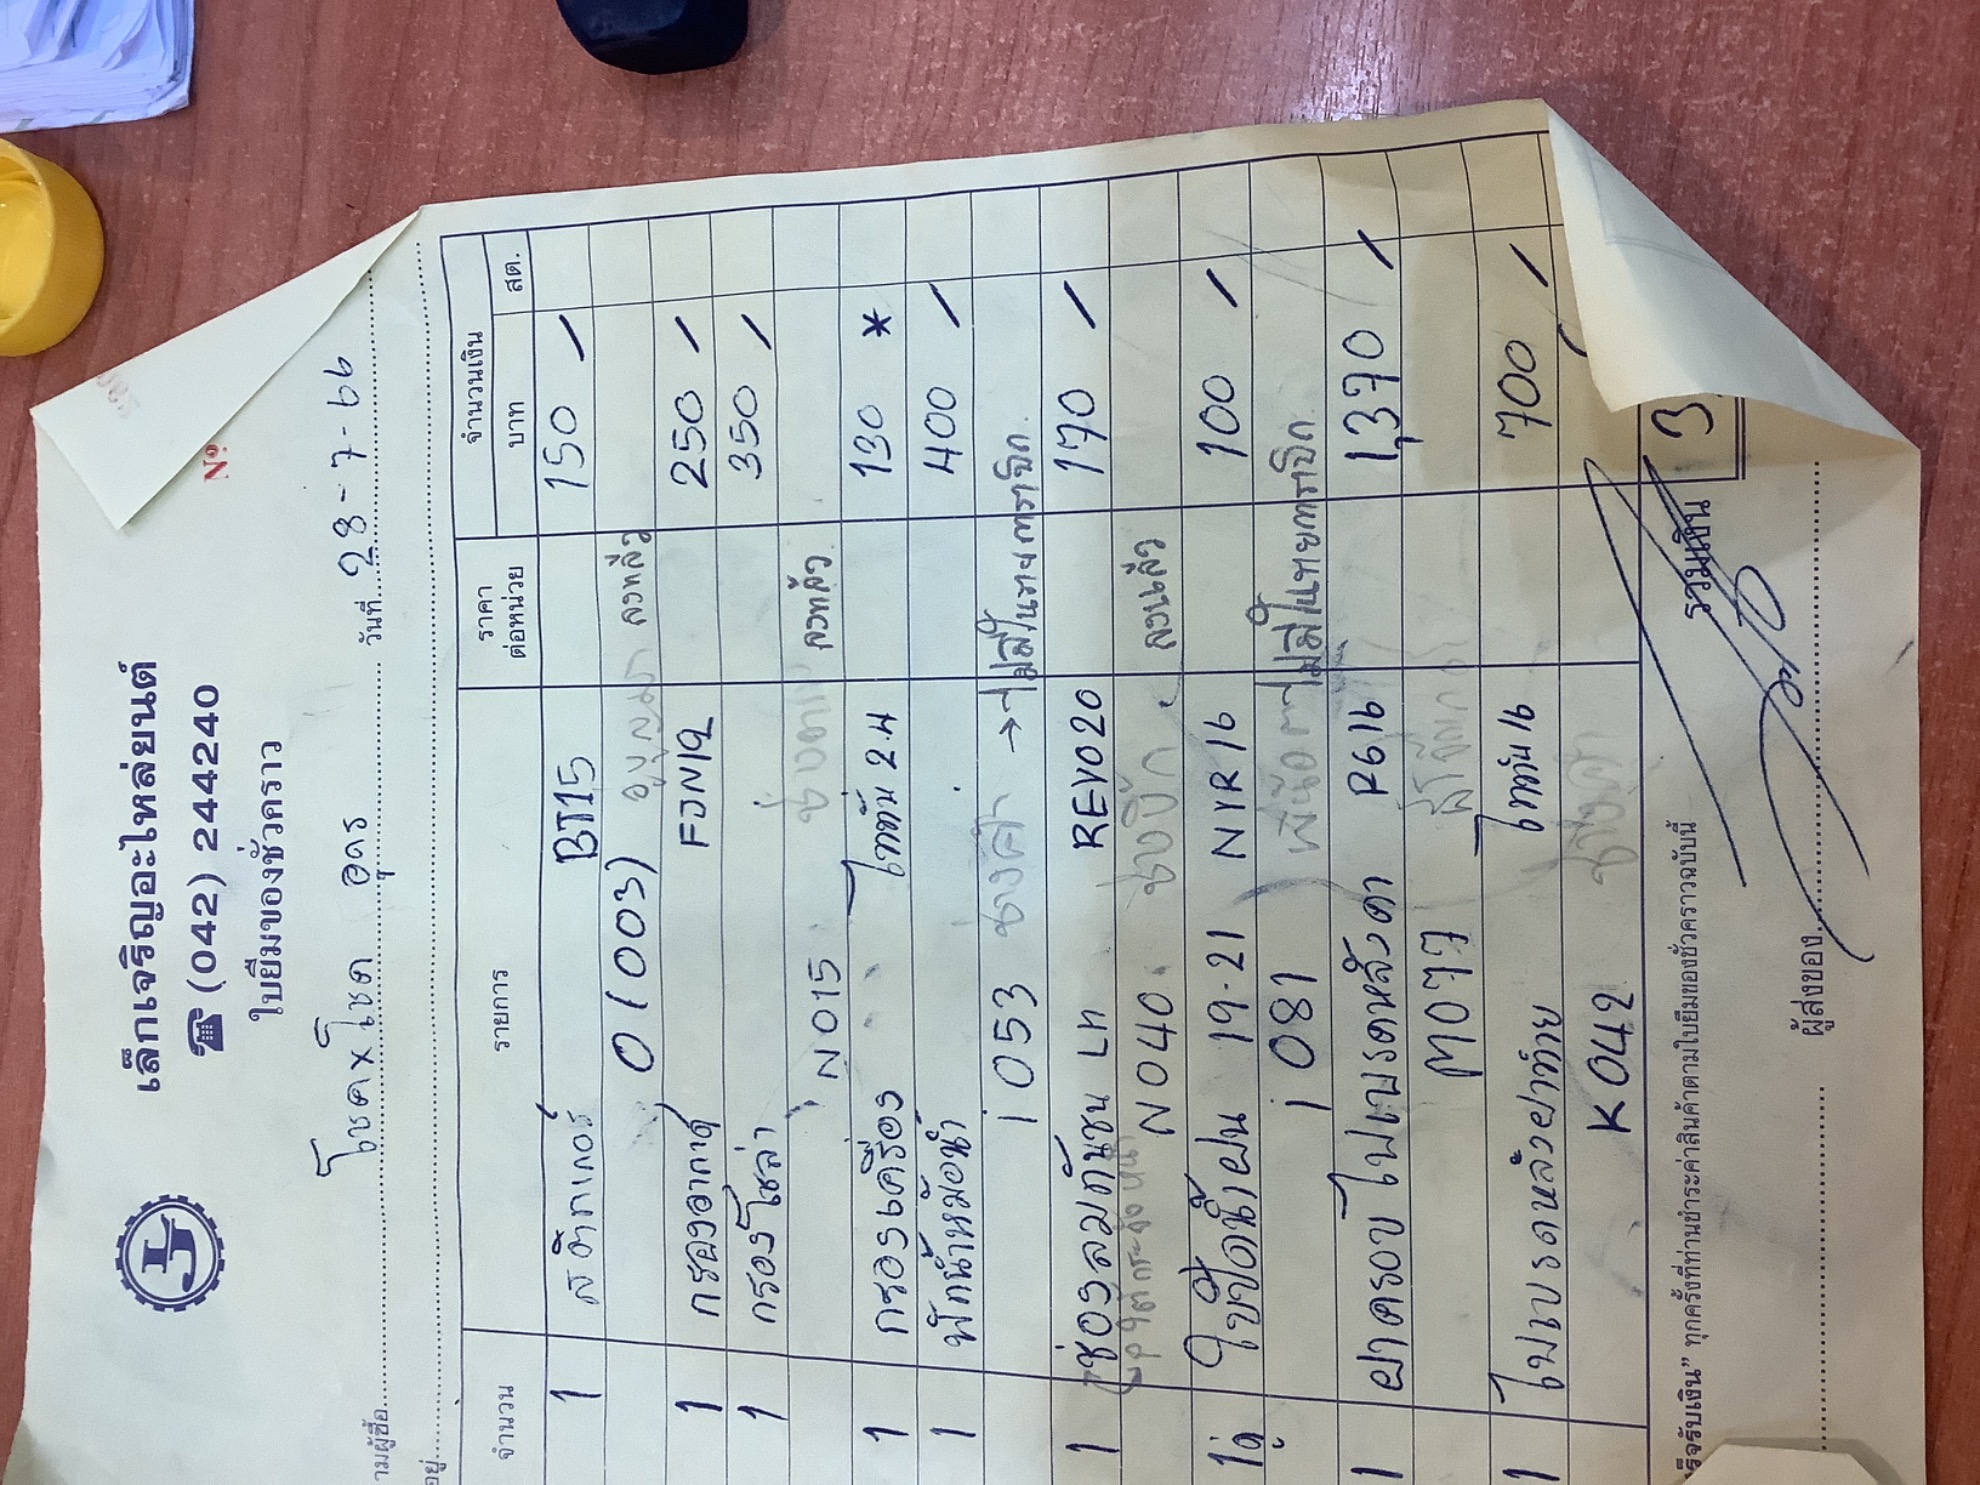 เล็กเจริญอะไหล่ยนต์
☎ (042) 244240
ใบยืมของชั่วคราว
Nº
ามผู้ซื้อ โชคxโชค อุดร วันที่ 28-7-66
อยู่
จำนวน รายการ ราคาต่อหน่วย จำนวนเงิน
บาท สต.
1 สติกเกอร์ BT15 150 /
01003) ลงแล้ว
1 กรองอากาศ FJN12 250 /
1 กรองโซล่า 350 /
N 015 ลงแล้ว
1 กรองเครื่อง ไททัน 2.4 130 *
1 พักน้ำหม้อน้ำ 400 /
i 053 ช่างศักา → ไม่มีในรายการเบิก
1 ช่องลมกันชน LH REVO20 170 /
N040 ช่างบิ๊ก ลงแล้ว
1คู่ ใบปัดน้ำฝน 19-21 NYR16 100 /
i 081 ไม่มีในรายการเบิก
1 ฝาครอบไฟเบรคหลังดำ R616 1,370 /
M077
1 ไฟเบรคหลังฝาท้าย ไททัน16 700 /
K042
รวมเงิน 3
ร็จรับเงิน” ทุกครั้งที่ท่านชำระค่าสินค้าตามใบยืมของชั่วคราวฉบับนี้
ผู้ส่งของ